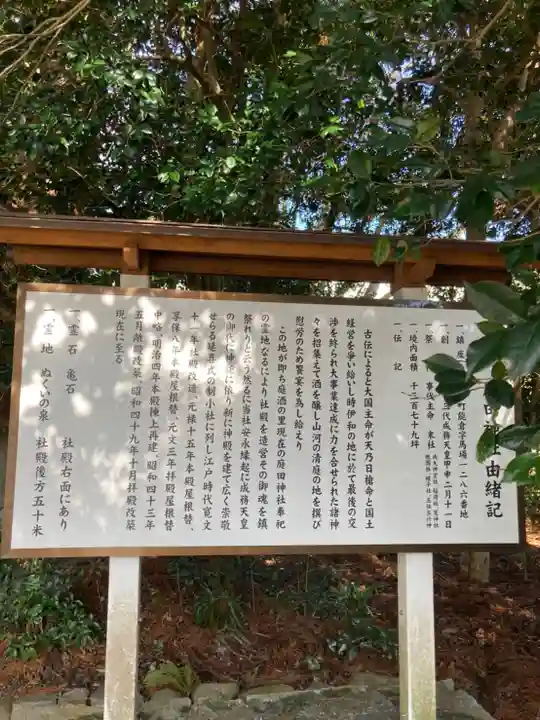 田神社由緒記
一、鎮座
町能倉字馬場一、二八六番地
一、創
三代成務天皇甲申二月十一日
一、祭
事代主命 末社
一、境内面積 千三百七十九坪
一、伝記
古伝によると大国主命が天乃日槍命と国土
経営を争い給いし時伊和の地に於て最後の交
渉を終られ大事業達成に力を合せられた諸神
々を招集えて酒を醸し山河の清庭の地を撰び
慰労のため饗宴を為し給えり
この地が即ち庭酒の里現在の庭田神社奉祀
の霊地なるにより社殿を造営その御魂を鎮
祭れりと云う然るに当社安永縁起に成務天皇
の御代に神託に依り新に神殿を建て広く崇敬
せらる延喜式の制小社に列し江戸時代寛文
十一年社殿改造、元禄十五年本殿屋根替、
享保八年本殿屋根替、元文三年拝殿屋根替
中略、明治四年本殿棟上再建、昭和四十三年
五月
改築、昭和四十九年十月拝殿改築
現在に至る
一、霊石 亀石 社殿右面にあり
一、霊地 ぬくいの泉 社殿後方五十米